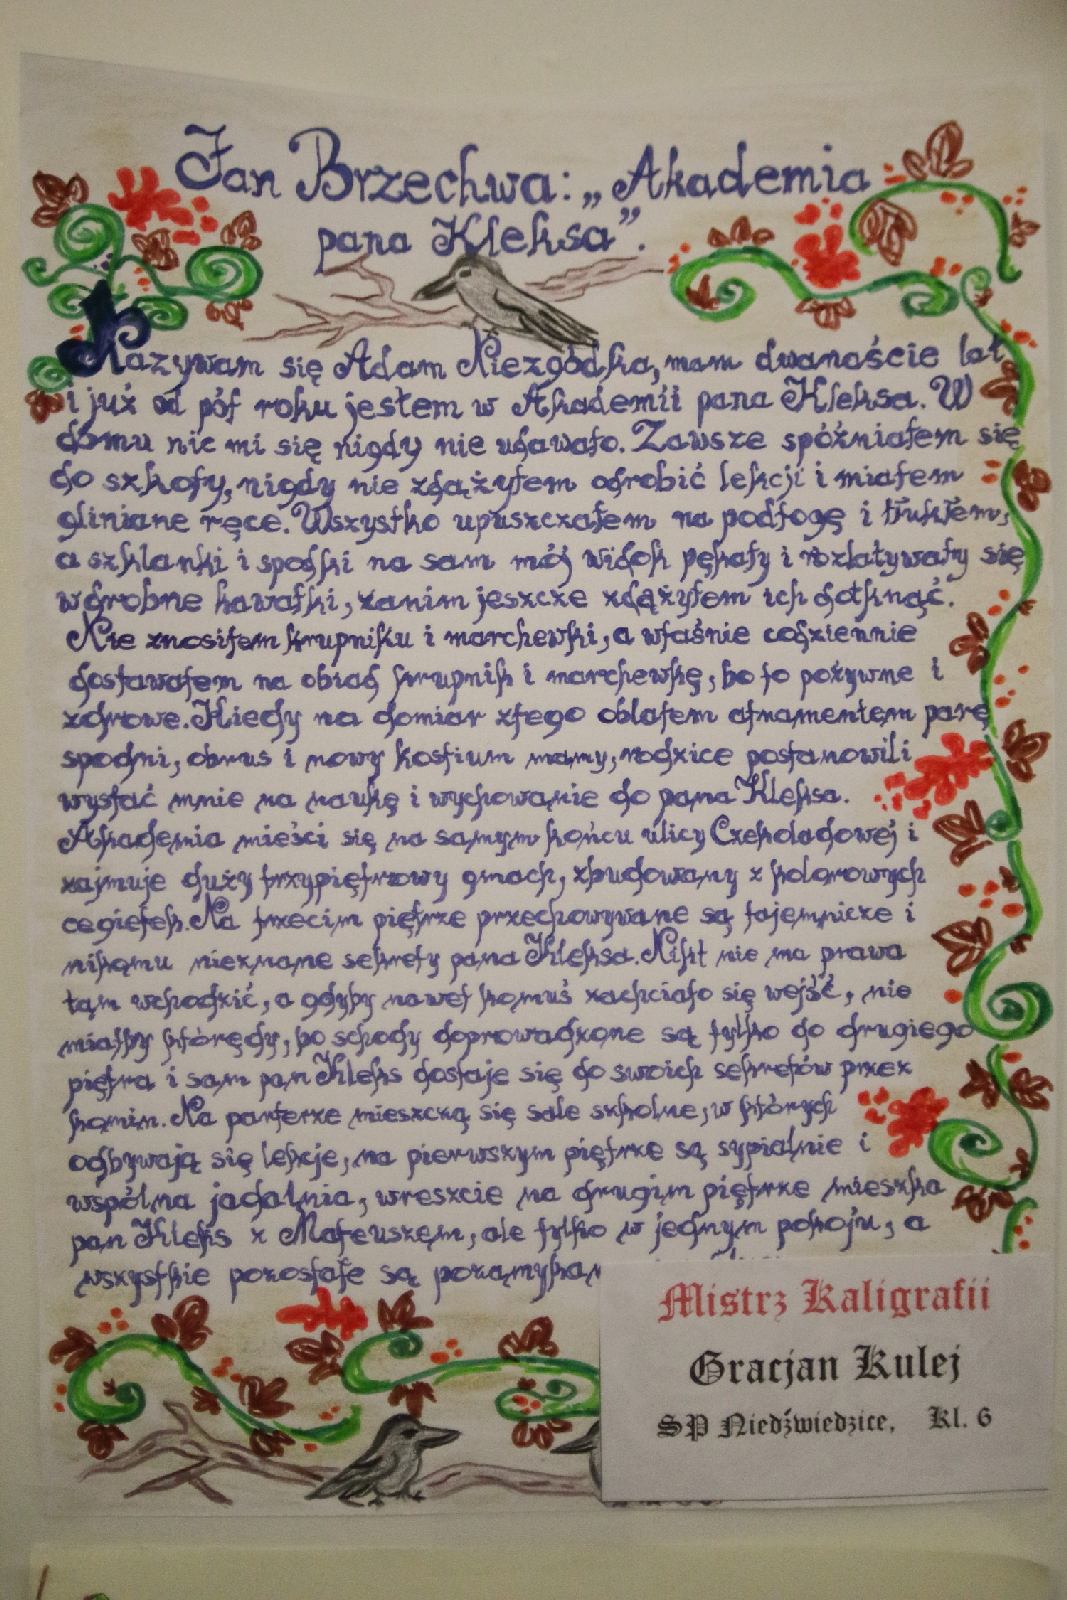 Jan Brzechwa: „Akademia
pana Kleksa”.
Nazywam się Adam Niezgódka, mam dwanaście lat
i już od pół roku jestem w Akademii pana Kleksa. W
domu nic mi się nigdy nie udawało. Zawsze spóźniałem się
do szkoły, nigdy nie zdążyłem odrobić lekcji i miałem
gliniane ręce. Wszystko upuszczałem na podłogę i tłukłem,
a szklanki i spodki na sam mój widok pękały i rozlatywały się
w drobne kawałki, zanim jeszcze zdążyłem ich dotknąć.
Nie znosiłem krupniku i marchewki, a właśnie codziennie
dostawałem na obiad krupnik i marchewkę, bo to pożywne i
zdrowe. Kiedy na domiar złego oblałem atramentem parę
spodni, obrus i nowy kostium mamy, rodzice postanowili
wysłać mnie na naukę i wychowanie do pana Kleksa.
Akademia mieści się na samym końcu ulicy Czekoladowej i
zajmuje duży trzypiętrowy gmach, zbudowany z kolorowych
cegiełek. Na trzecim piętrze przechowywane są tajemnicze i
nikomu nieznane sekrety pana Kleksa. Nikt nie ma prawa
tam wchodzić, a gdyby nawet komuś zachciało się wejść, nie
miałby którędy, bo schody doprowadzone są tylko do drugiego
piętra i sam pan Kleks dostaje się do swoich sekretów przez
komin. Na parterze mieszczą się sale szkolne, w których
odbywają się lekcje, na pierwszym piętrze są sypialnie i
wspólna jadalnia, wreszcie na drugim piętrze mieszka
pan Kleks z Mateuszem, ale tylko w jednym pokoju, a
wszystkie pozostałe są
Mistrz Kaligrafii
Gracjan Kulej
SP Niedźwiedzice, Kl. 6